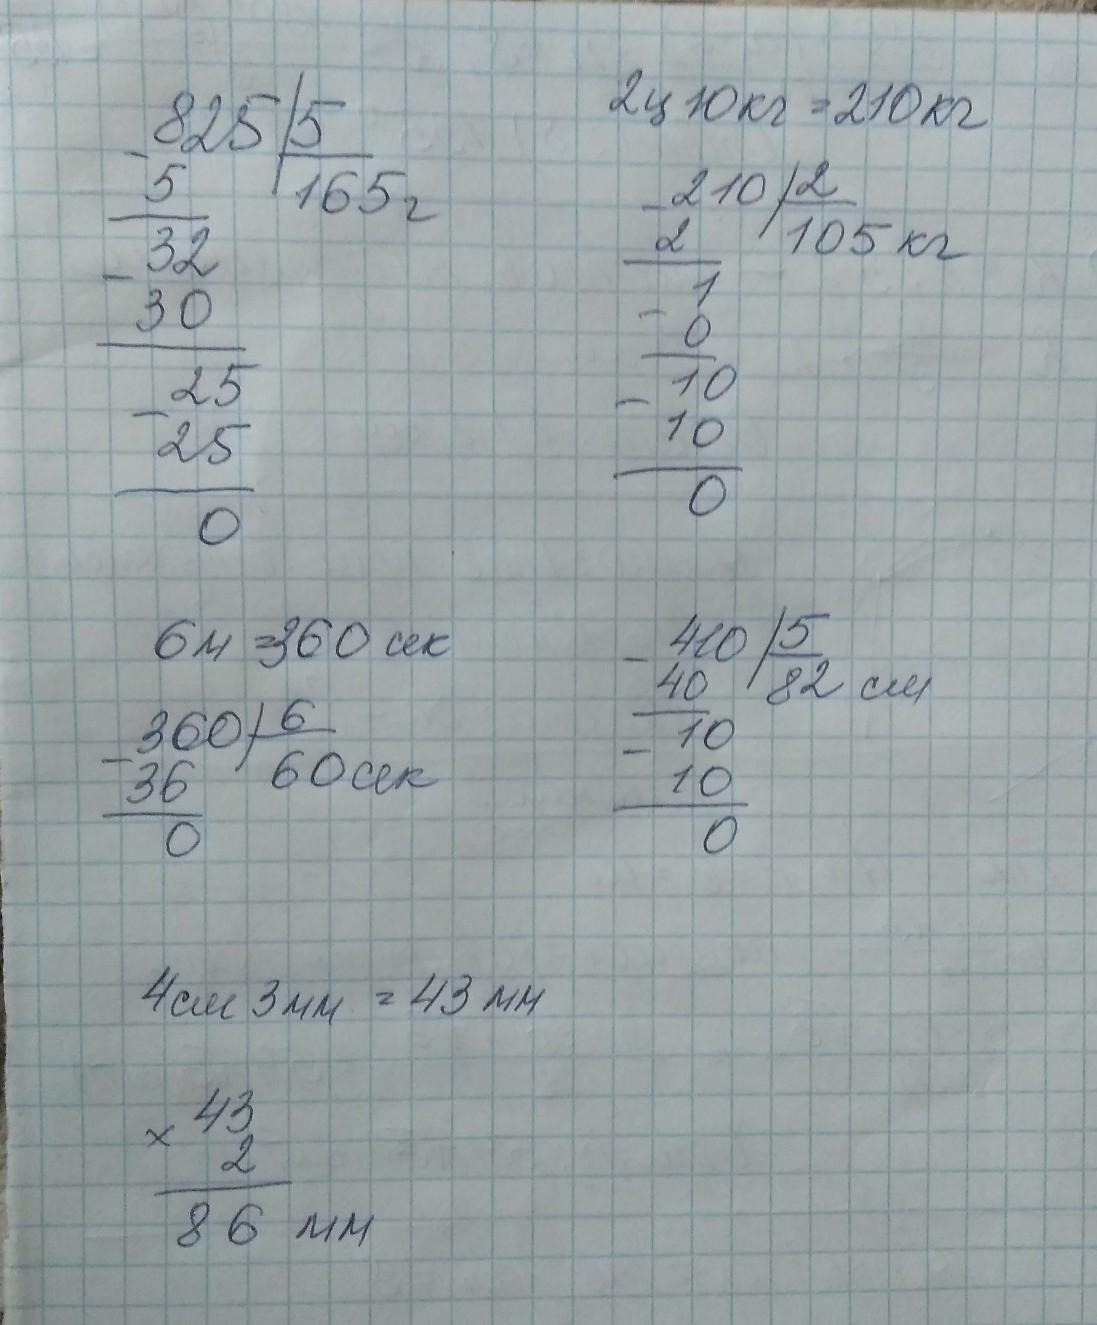 825 | 5
- 5 165 г
32
- 30
25
- 25
0
2ц 10кг = 210кг
- 210 | 2
2 105 кг
1
- 0
10
- 10
0
6м = 360 сек
- 360 | 6
36 60 сек
0
- 410 | 5
40 82 см
10
- 10
0
4см 3мм = 43 мм
× 43
2
86 мм